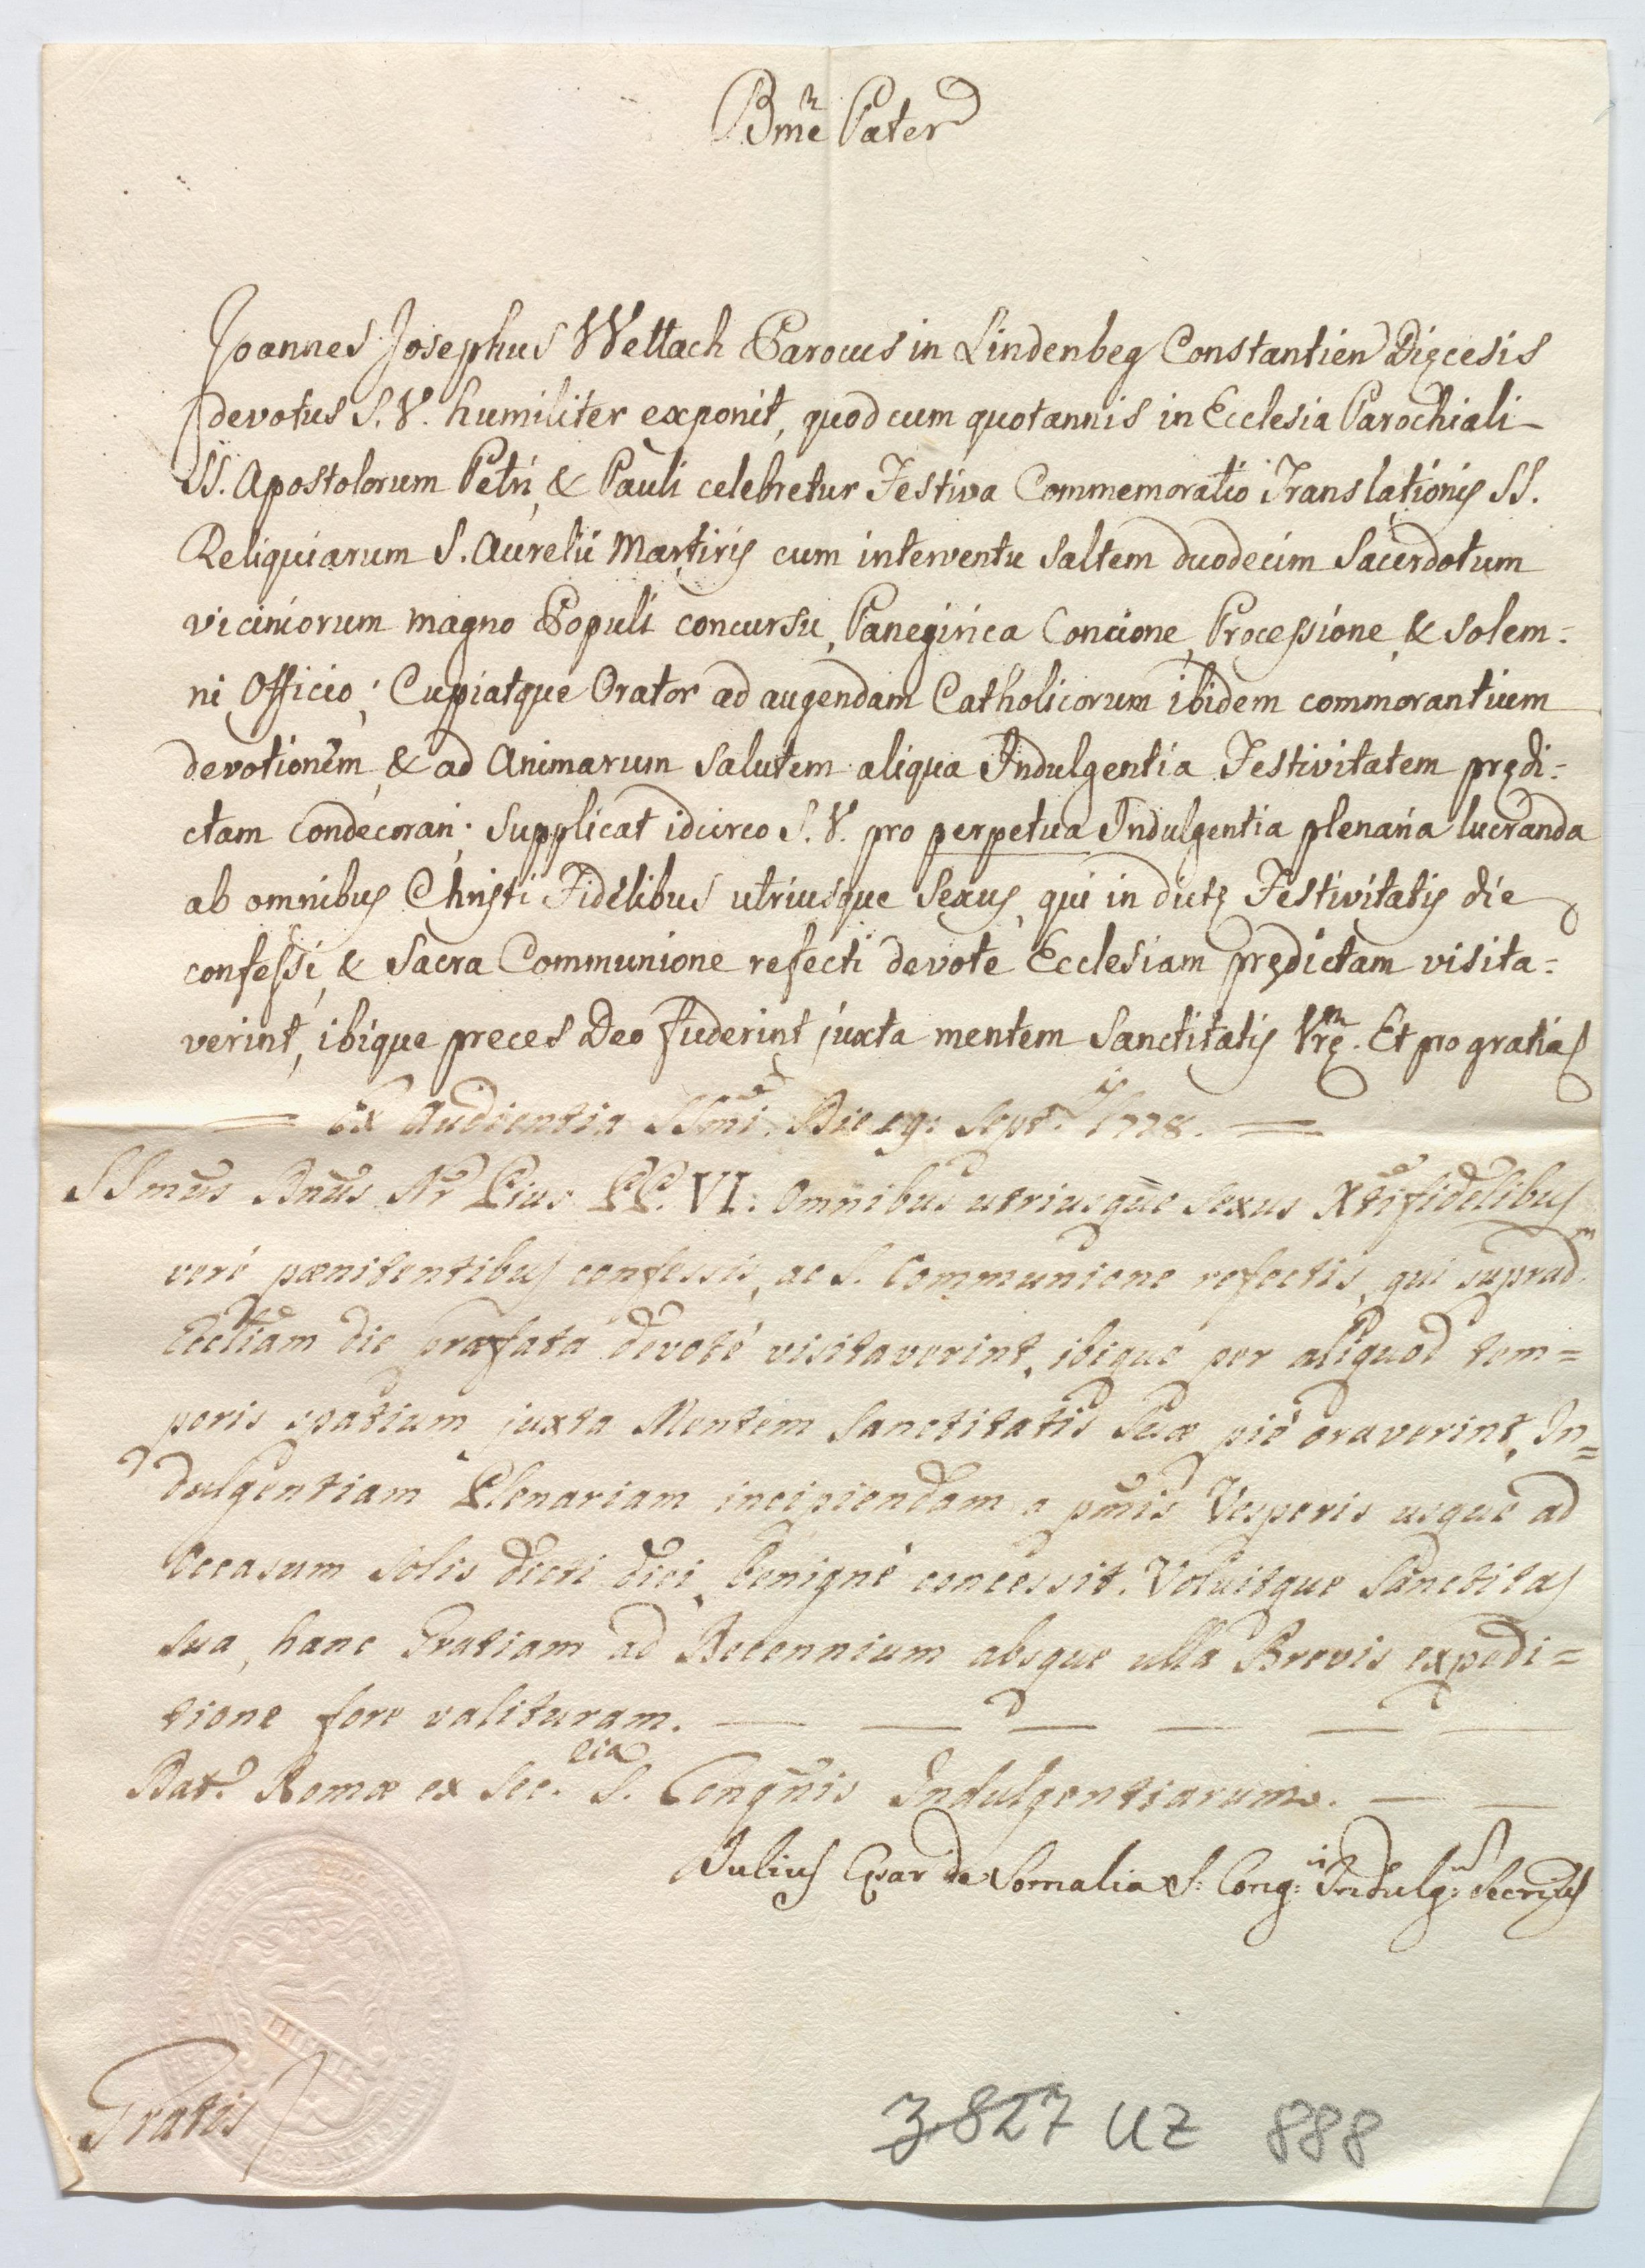 Bm̄e Pater
Joannes Josephus Wettach Parocus in Lindenbeg Constantien Dięcesis
devotus S. V. humiliter exponit, quod cum quotannis in Ecclesia Parochiali
SS. Apostolorum Petri, & Pauli celebretur Festiva Commemoratio Translationis SS.
Reliquiarum S. Aurelii Martiris cum interventu saltem duodecim Sacerdotum
viciniorum magno Populi concursu, Panegirica Concione, Processione, & solem=
ni Officio; Cupiatque Orator ad augendam Catholicorum ibidem commorantium
devotionem, & ad Animarum salutem aliqua Indulgentia Festivitatem prędi=
ctam condecorari; Supplicat idcirco S. V. pro perpetua Indulgentia plenaria lucranda
ab omnibus Christi Fidelibus utriusque Sexus, qui in dictę Festivitatis die
confessi, & Sacra Communione refecti devote Ecclesiam prędictam visita=
verint, ibique preces Deo fuderint juxta mentem Sanctitatis Vrę. Et pro gratias
= Ex Audientia SSmi. Die 29: Septris 1778. =
SSmus Dnus Nr Pius PP. VI: Omnibus utriusque Sexus Xtifidelibus
veré pænitentibus confessis, ac S. Communione refectis, qui suprad.m
Eccliam die præfata devoté visitaverint, ibique per aliquod tem=
poris spatium juxta Mentem Sanctitatis Suæ pié oraverint, In=
dulgentiam Plenariam incipiendam a pmis Vesperis usque ad
Occasum Solis dicti diei, benigné concessit. Voluitque Sanctitas
sua, hanc Gratiam ad Decennium absque ulla Brevis expedi=
tione fore valituram. — — — — — —
Dat. Romæ ex Sec.ria S. Congnis Indulgentiarum. — —
Julius Cęsar de Somalia S: Cong:nis Indulg: Secrius
Gratis
3.827 UZ 888